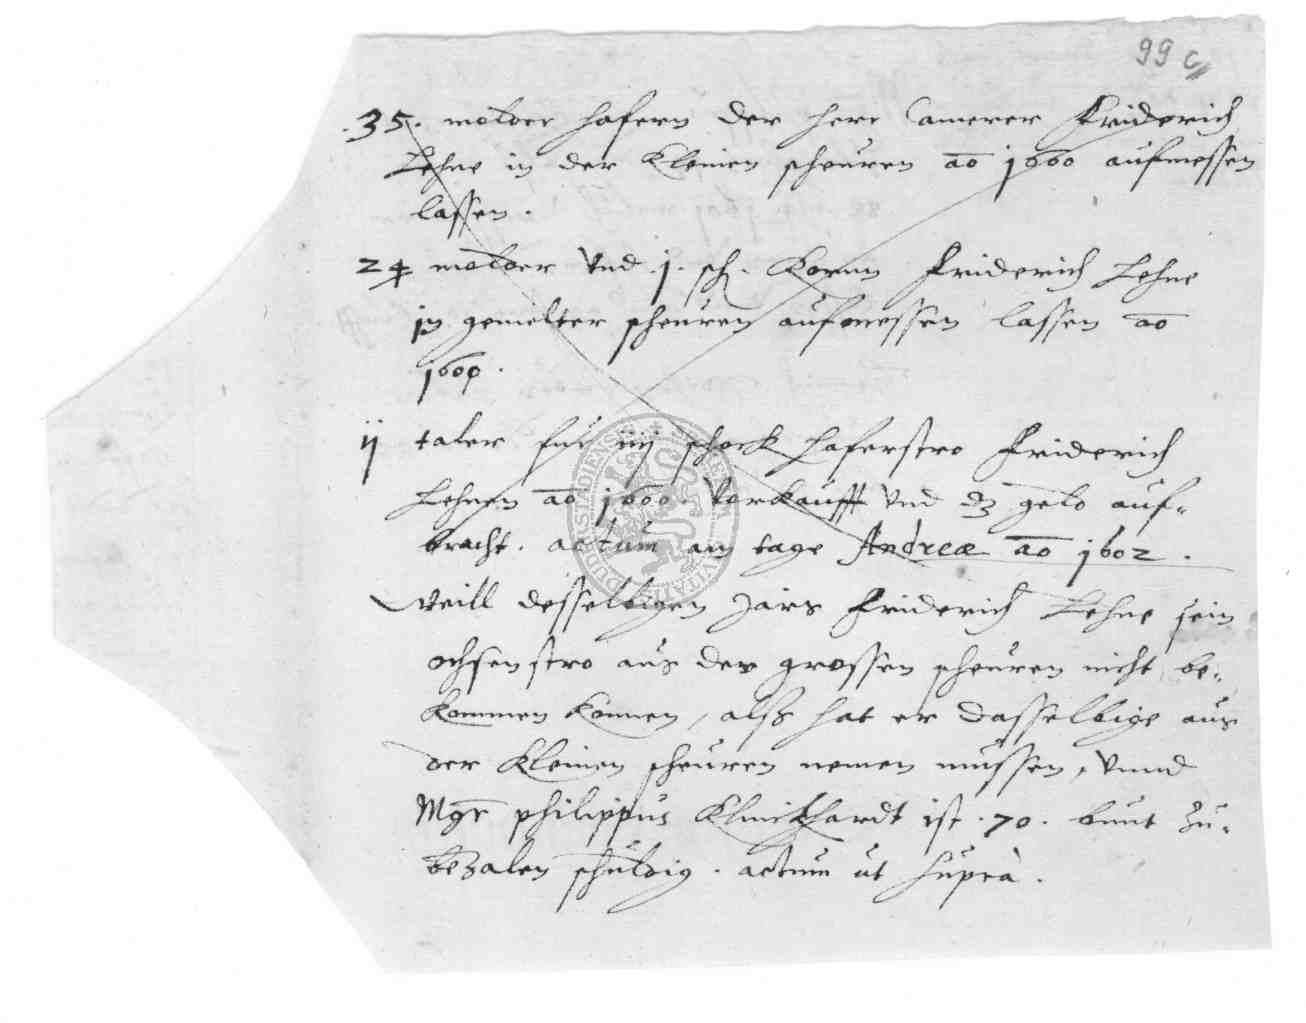 99 c
.35. molder hafern der herr Camerer Friderich
Lehne in der kleinen scheuren ao 1600 aufmessen
lassen.
24 molder vnd .j. sch. Kornn Friderich Lehne
in gemelter scheuren aufmessen lassen ao
1600.
ij taler für iiij schock haferstro Friderich
Lehnen ao 1600. verkaufft vnd dz geld auf-
bracht. actum am tage Andreæ ao 1602.
Weill desselbigen Jars Friderich Lehne sein
ochsenstro aus der grossen scheuren nicht be-
kommen können, alss hat er dasselbige aus
der kleinen scheuren nemen müssen, vnnd
Mgr philippus Klinckhardt ist .70. bunt zu-
bezalen schuldig. actum ut supra.